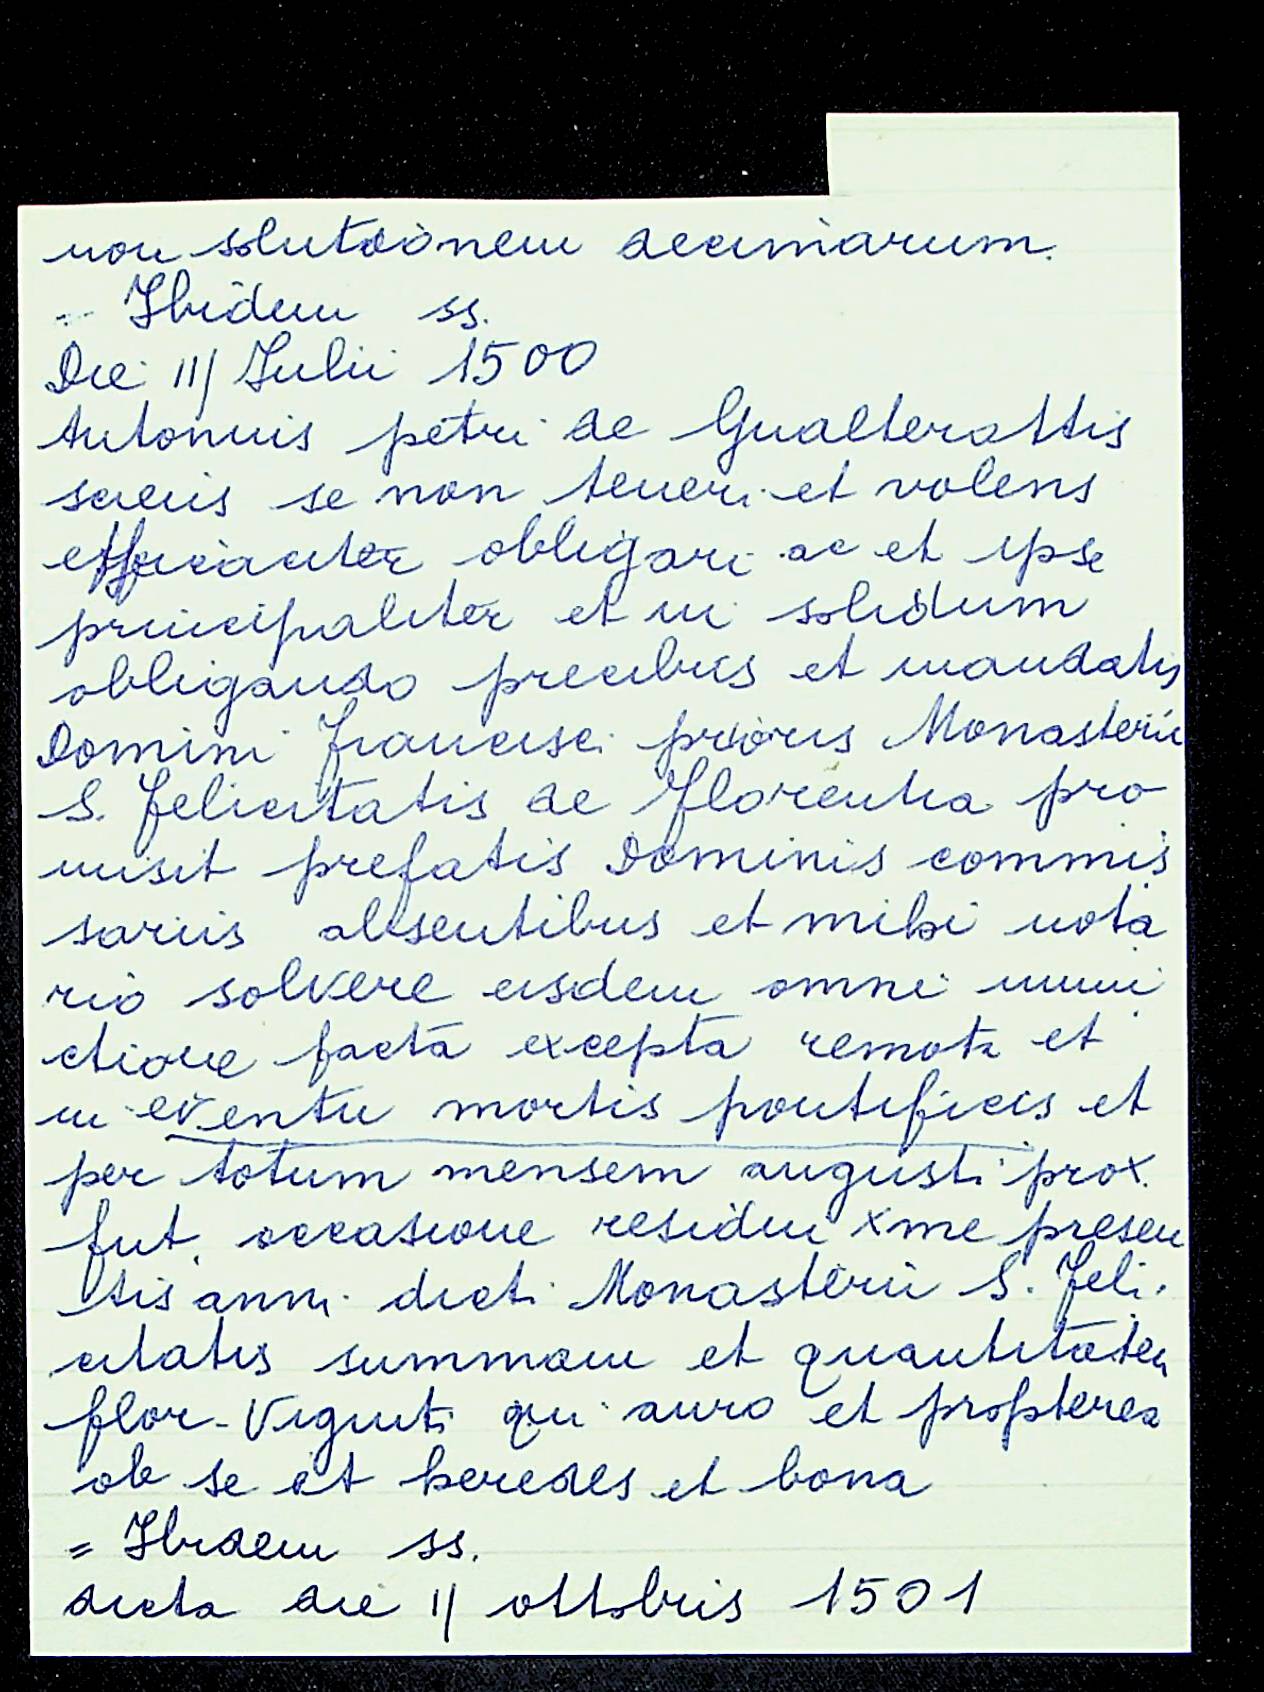 non solutionem decimarum.
= Ibidem ss.
Die 11/ Julii 1500
Antonius petri de Gualterottis
sciens se non teneri et volens
efficaciter obligari ac et ipse
principaliter et in solidum
obligando precibus et mandatis
Domini francisci prioris Monasterii
S. felicitatis de florentia pro
misit prefatis Dominis commis
sariis absentibus et mihi nota
rio solvere eisdem omni
ctione facta excepta remota et
in eventu mortis pontificis et
per totum mensem augusti prox.
fut. occasione residui xme presen
tis anni dicti Monasterii S. feli.
citatis summam et quantitatem
flor. Viginti qui auro et propterea
ob se et heredes et bona
= Ibidem ss.
dicta die 11 ottobris 1501